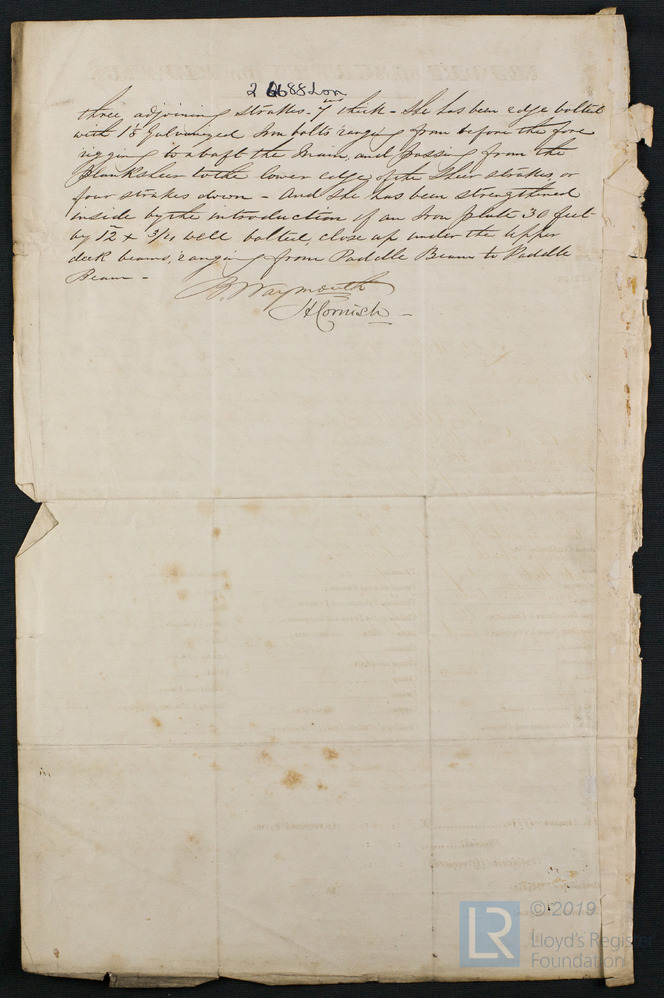 2 6688 Lon
three adjoining strakes 7 ins thick – She has been edge bolted
with 1⅛ Galvanized Iron bolts ranging from before the fore
rigging to abaft the Main, and passing from the
Planksheer to the lower edge of the Sheer strakes, or
four strakes down – And she has been strengthened
inside by the introduction of an Iron plate 30 feet
by 12 x 3/4 well bolted, close up under the Upper
deck beams, ranging from Paddle Beam to Paddle
Beam –
B. Waymouth
H Cornish –
LR
© 2019
Lloyd's Register
Foundation